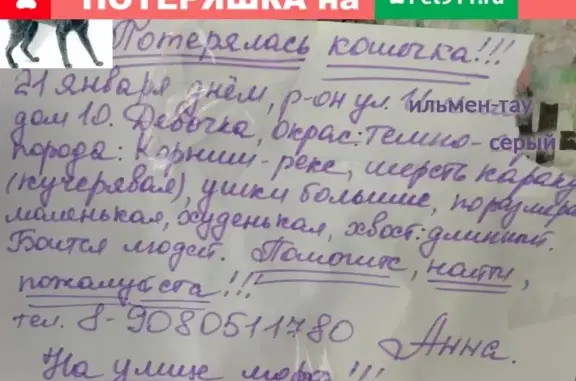 ПОТЕРЯШКА на
Потерялась кошечка!!!
21 января днём, р-он ул. ильмен-тау
дом 10. Девочка, окрас: темно-серый
порода: Корниш-рекс, шерсть
(кучерявая), ушки большие,
маленькая, худенькая, хвост: длинный.
Боится людей. Помогите, найти,
пожалуйста!!!
тел. 8-9080511780 Анна.
На улице мороз!!!